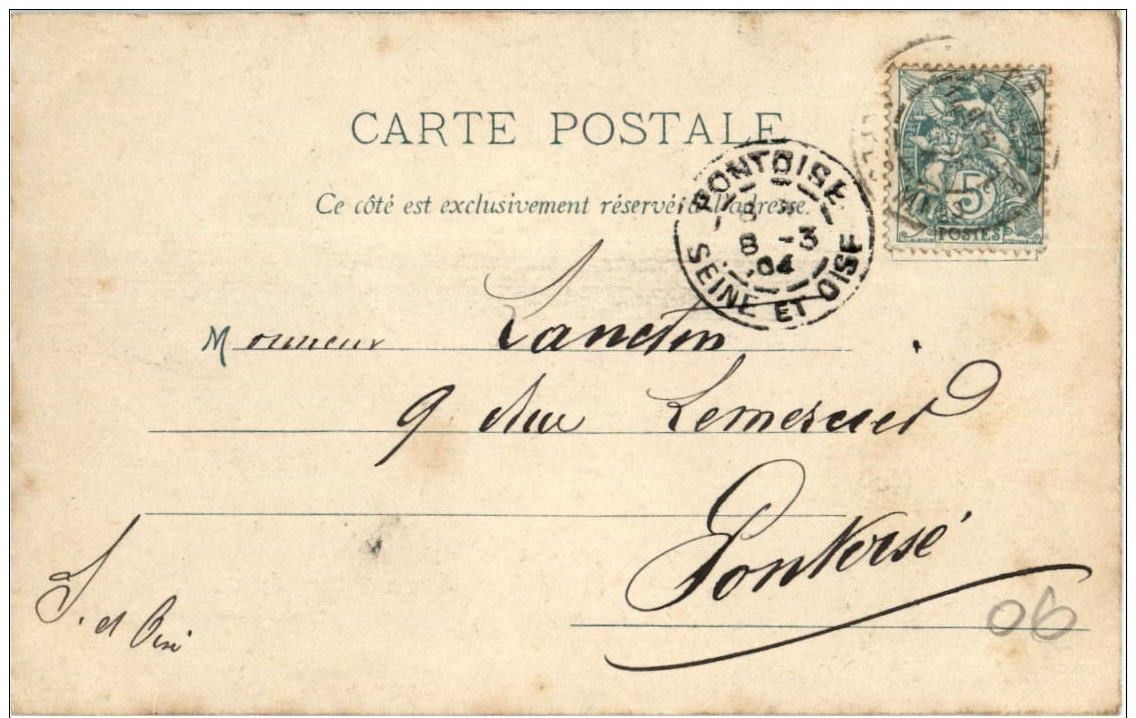 CARTE POSTALE
Ce côté est exclusivement réservé à l'adresse.
PONTOISE
8 -3
04
SEINE ET OISE
5
POSTES
Monsieur
9 Rue Lemercier
Pontoise
S. et Oise
06